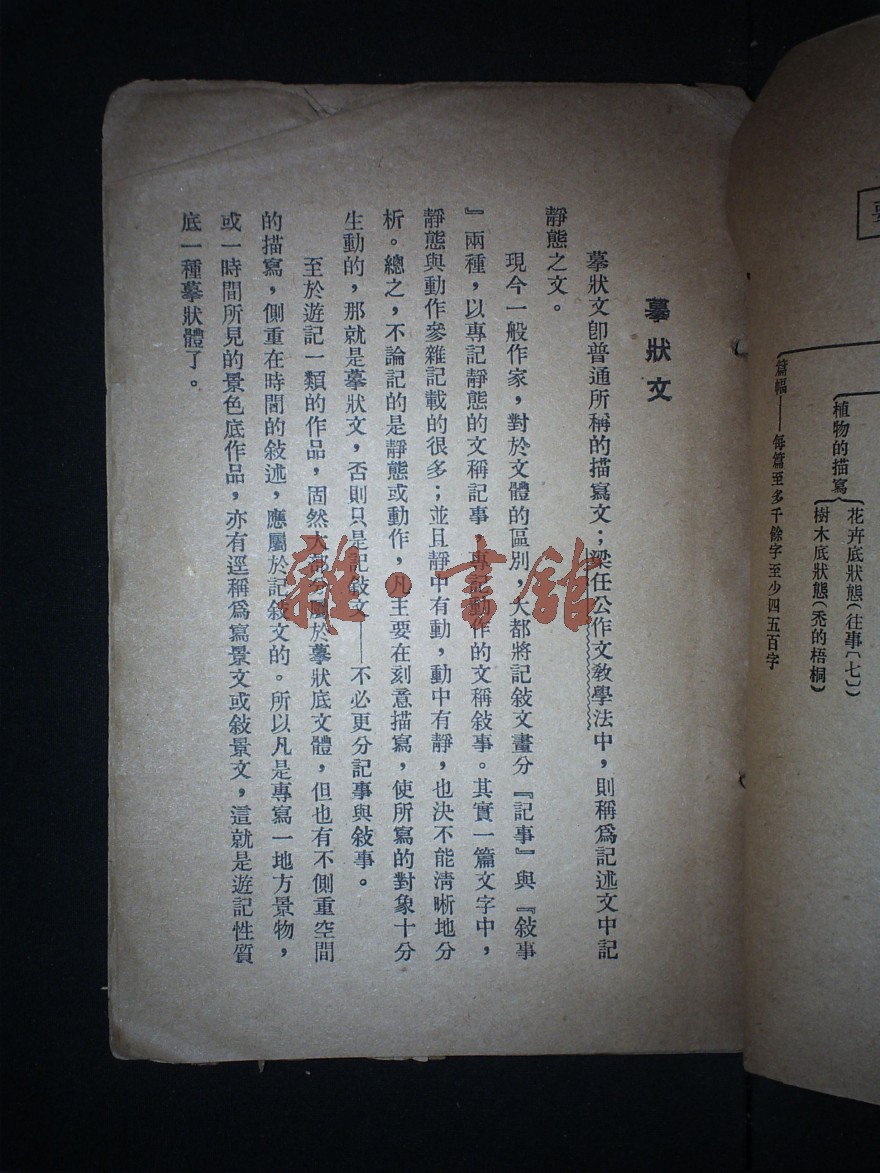 植物的描寫
花卉底狀態(往事〔七〕)
樹木底狀態(禿的梧桐)
篇幅——每篇至多千餘字至少四五百字
摹狀文
摹狀文卽普通所稱的描寫文；梁任公作文敎學法中，則稱爲記述文中記
靜態之文。
現今一般作家，對於文體的區別，大都將記敍文畫分『記事』與『敍事
』兩種，以專記靜態的文稱記事，專記動作的文稱敍事。其實一篇文字中，
靜態與動作參雜記載的很多；並且靜中有動，動中有靜，也決不能淸晰地分
析。總之，不論記的是靜態或動作，凡主要在刻意描寫，使所寫的對象十分
生動的，那就是摹狀文，否則只是記敍文——不必更分記事與敍事。
至於遊記一類的作品，固然大部分屬於摹狀底文體，但也有不側重空間
的描寫，側重在時間的敍述，應屬於記敍文的。所以凡是專寫一地方景物，
或一時間所見的景色底作品，亦有逕稱爲寫景文或敍景文，這就是遊記性質
底一種摹狀體了。
雜·書館